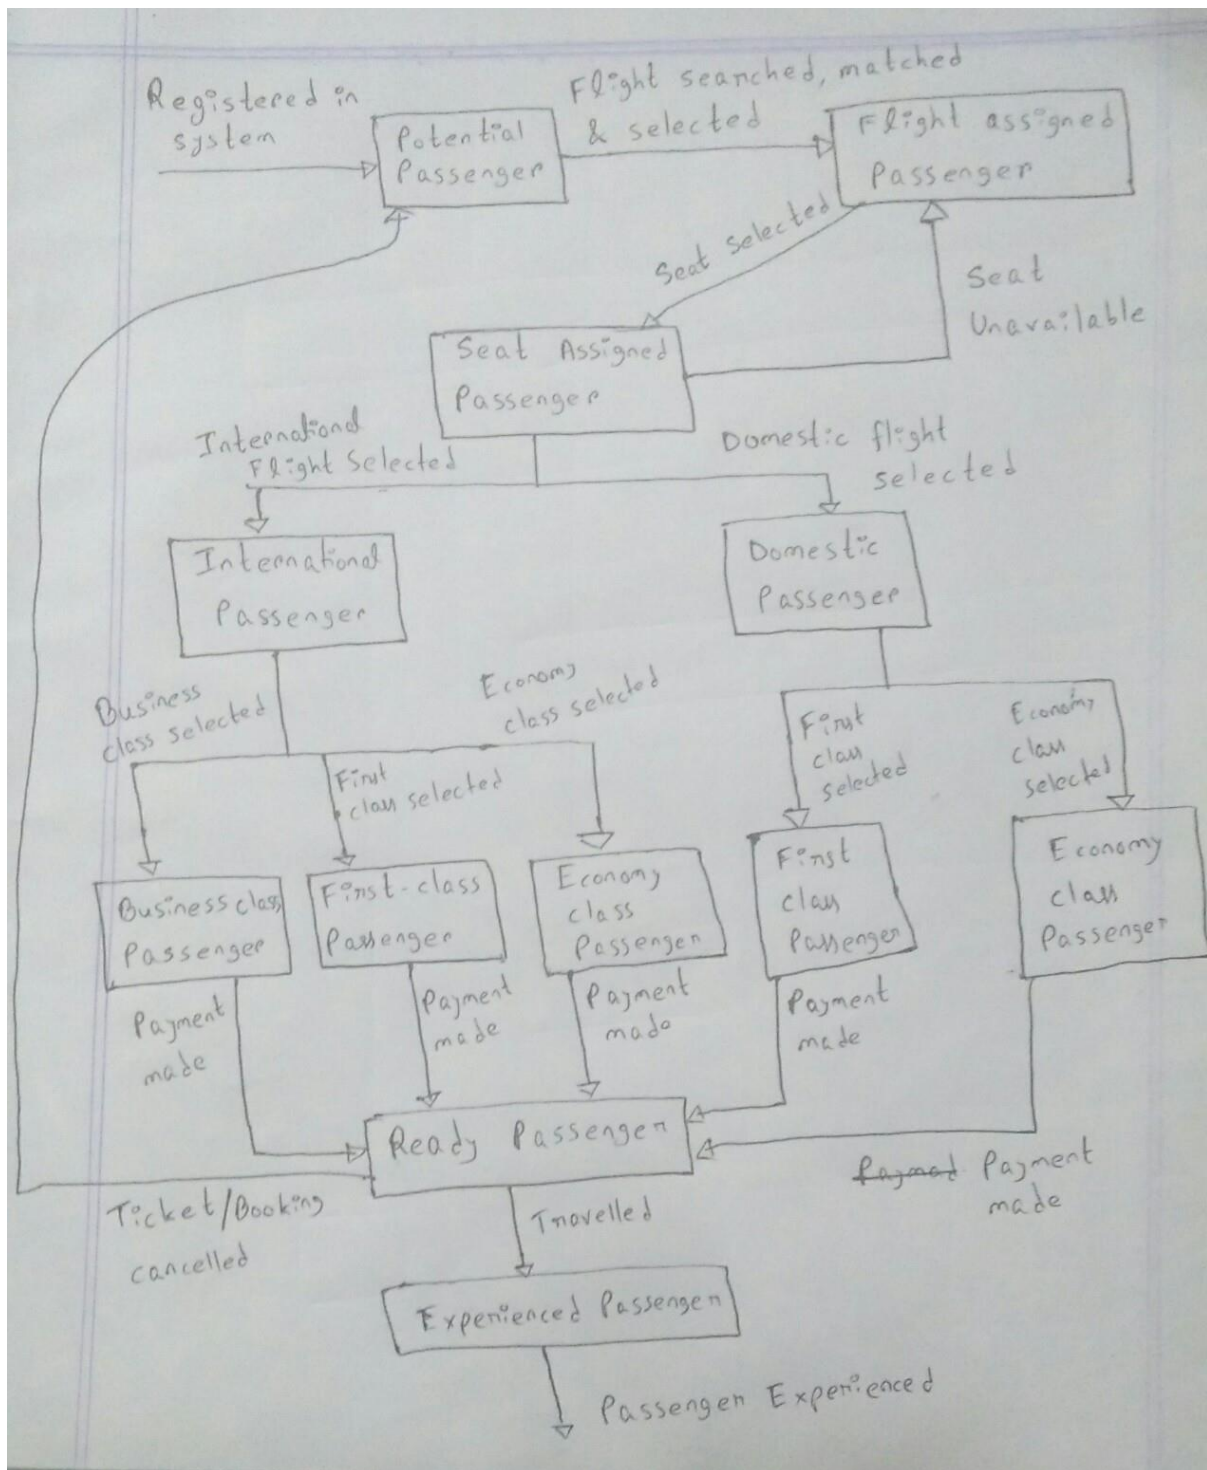 Registered in
system
Potential
Passenger
Flight searched, matched
& selected
Flight assigned
Passenger
Seat selected
Seat
Unavailable
Seat Assigned
Passenger
International
Flight Selected
Domestic flight
selected
International
Passenger
Domestic
Passenger
Business
class selected
First
class selected
Economy
class selected
First
class
selected
Economy
class
selected
Business class
Passenger
First-class
Passenger
Economy
class
Passenger
First
class
Passenger
Economy
class
Passenger
Payment
made
Payment
made
Payment
made
Payment
made
Payment
made
Ready Passenger
Ticket/Booking
cancelled
Travelled
Experienced Passenger
Passenger Experienced